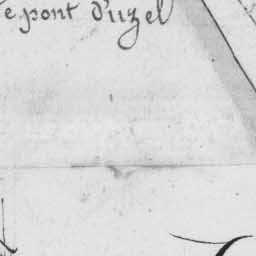 e pont d'uzel